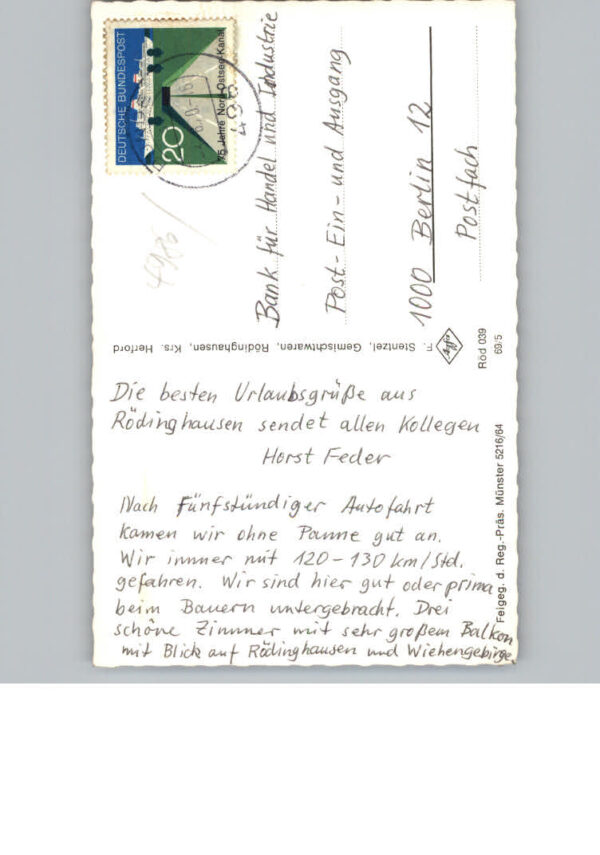 DEUTSCHE BUNDESPOST
20
75 Jahre Nord-Ostsee-Kanal
496
Bank für Handel und Industrie
Post-Ein- und Ausgang
1000 Berlin 12
Postfach
F. Stentzel, Gemischtwaren, Rödinghausen, Krs. Herford
Agfa
Röd 039
69/5
Die besten Urlaubsgrüße aus
Rödinghausen sendet allen Kollegen
Horst Feder
Nach Fünfstündiger Autofahrt
kamen wir ohne Panne gut an.
Wir immer mit 120-130 km/Std.
gefahren. Wir sind hier gut oder prima
beim Bauern untergebracht. Drei
schöne Zimmer mit sehr großem Balkon
mit Blick auf Rödinghausen und Wiehengebirge.
Feigeg. d. Reg.-Präs. Münster 5216/64